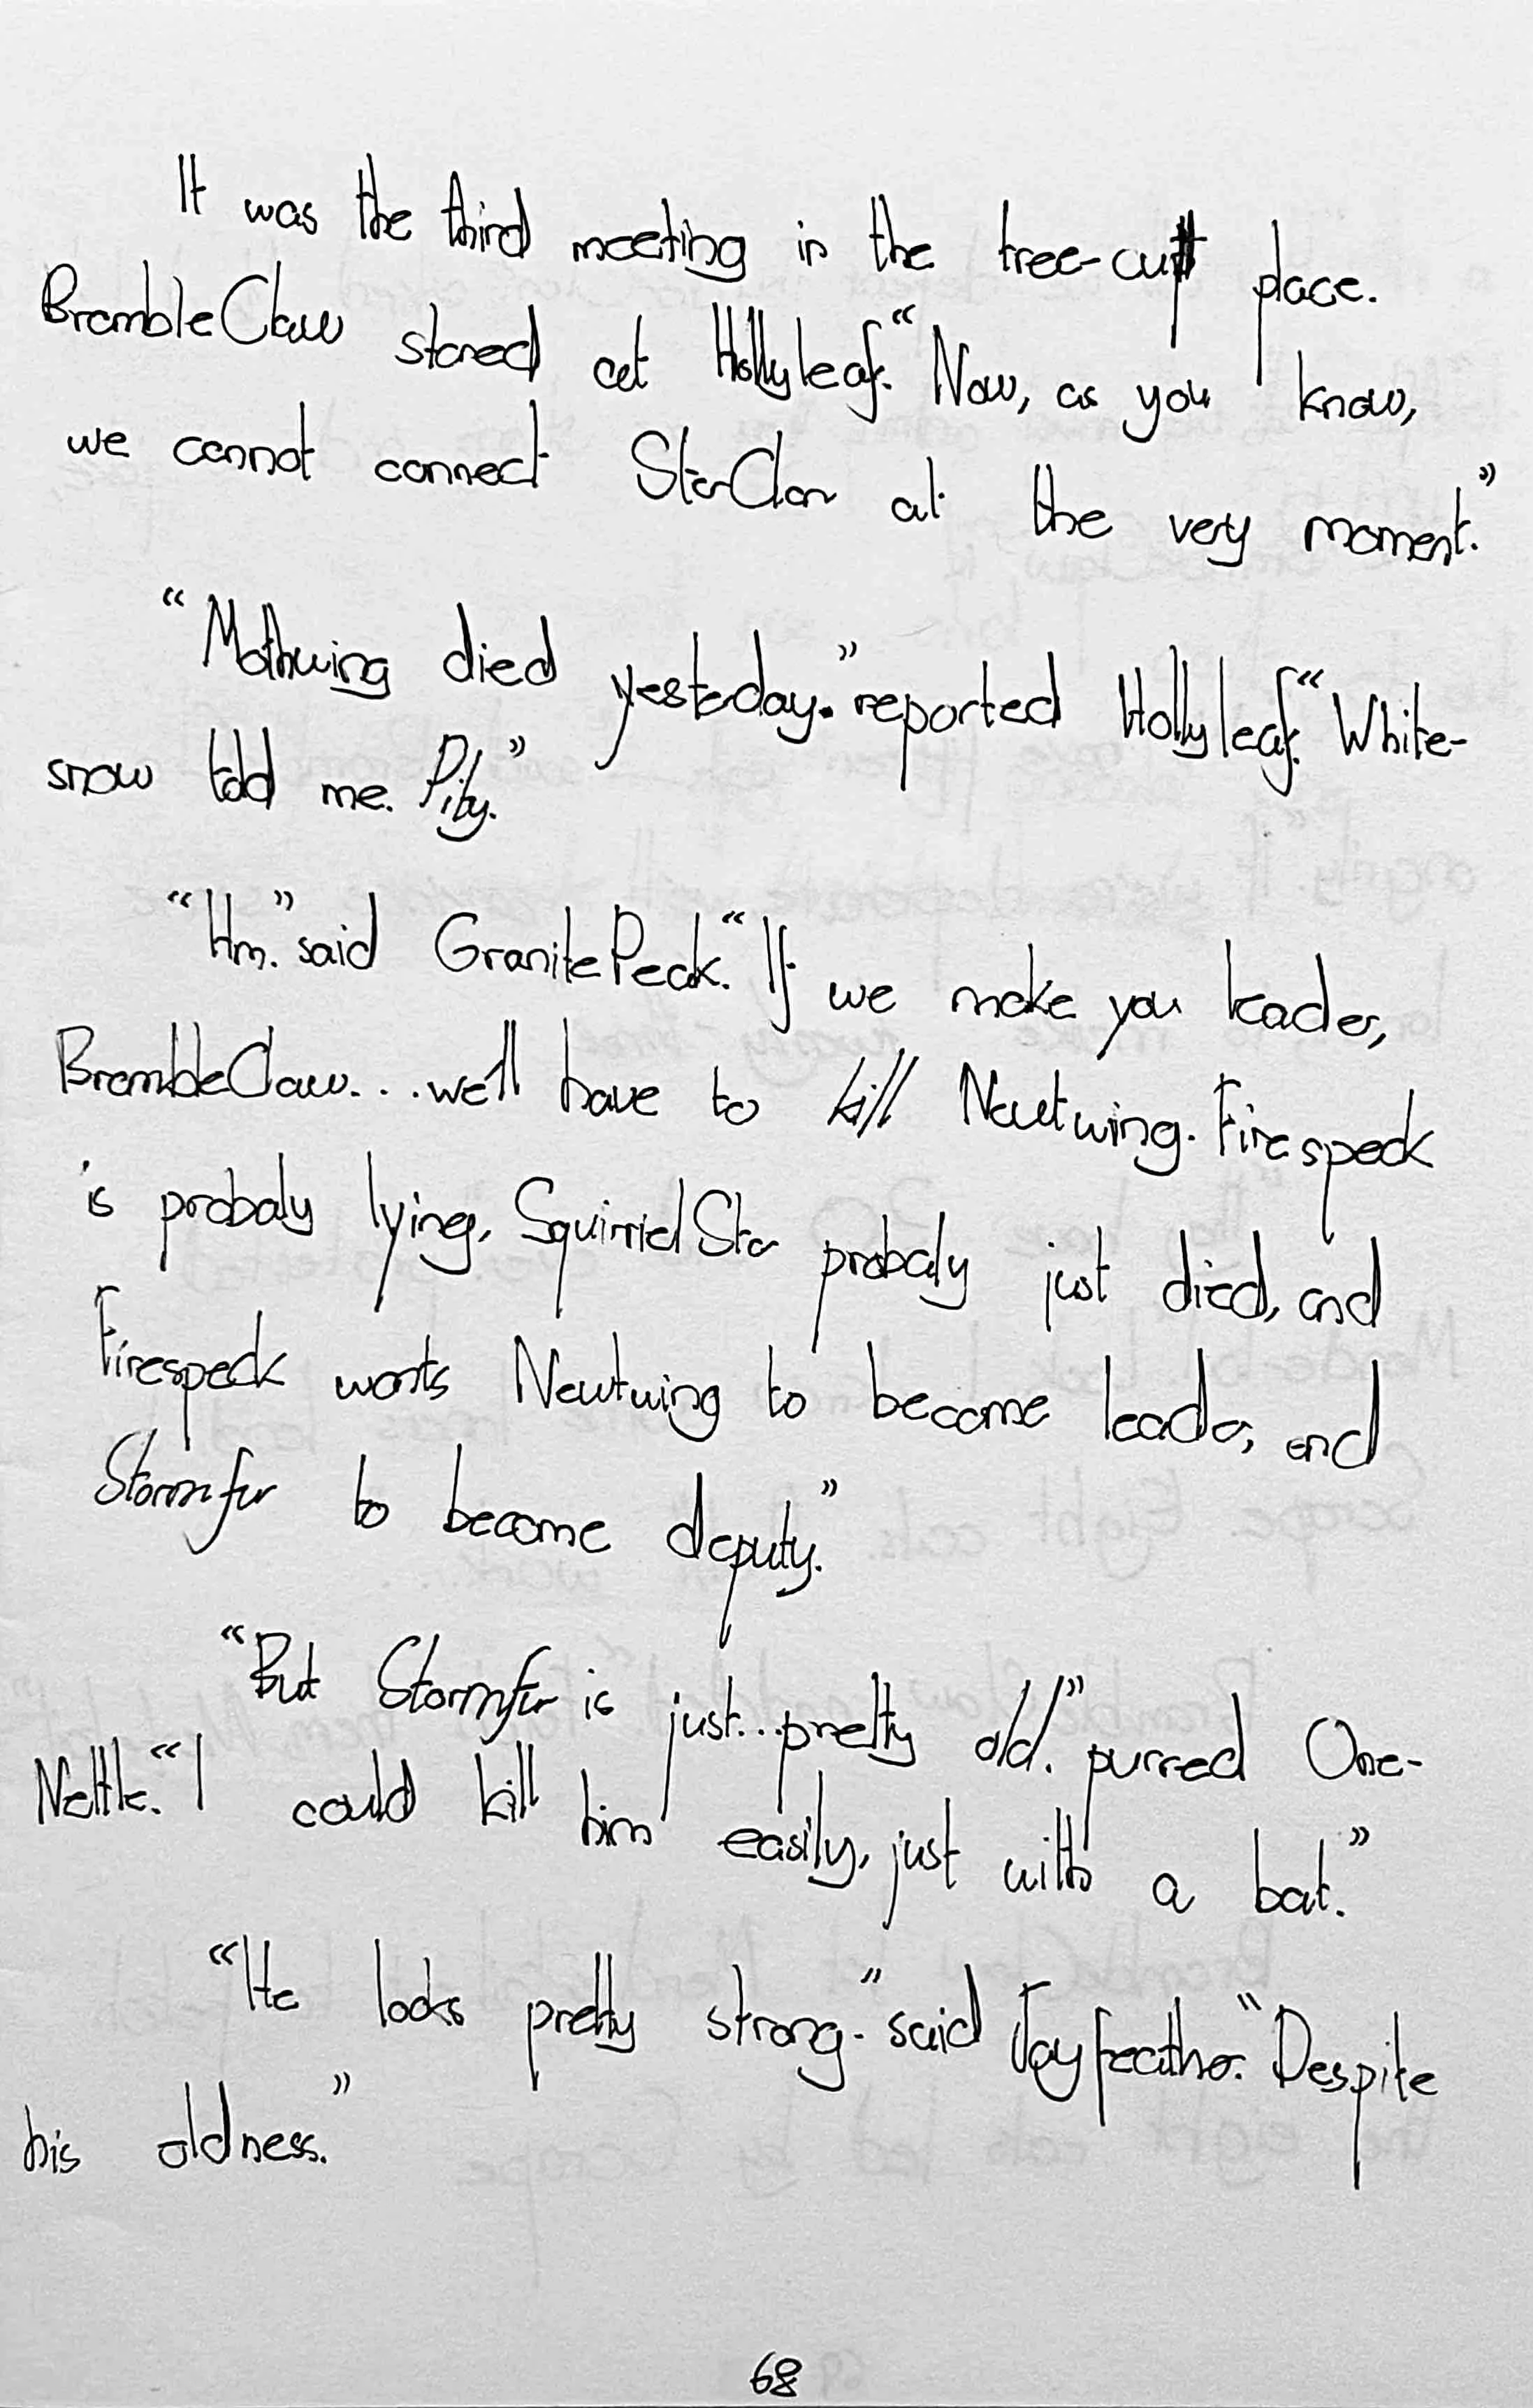 It was the third meeting in the tree-cut place.
BrambleClaw stared at Hollyleaf. “Now, as you know,
we cannot connect StarClan at the very moment.”
“Mothwing died yesterday.” reported Hollyleaf. “White-
snow told me. Pity.”
“Hm.” said GranitePeak. “If we make you leader,
BrambleClaw... we'll have to kill Newtwing. Firespeck
is probaly lying, SquirrielStar probaly just died, and
Firespeck wants Newtwing to become leader, and
Stormfur to become deputy.”
“But Stormfur is just...pretty old.” purred One-
Nettle. “I could kill him easily, just with a bat.”
“He looks pretty strong.” said Jayfeather. “Despite
his oldness.”
68